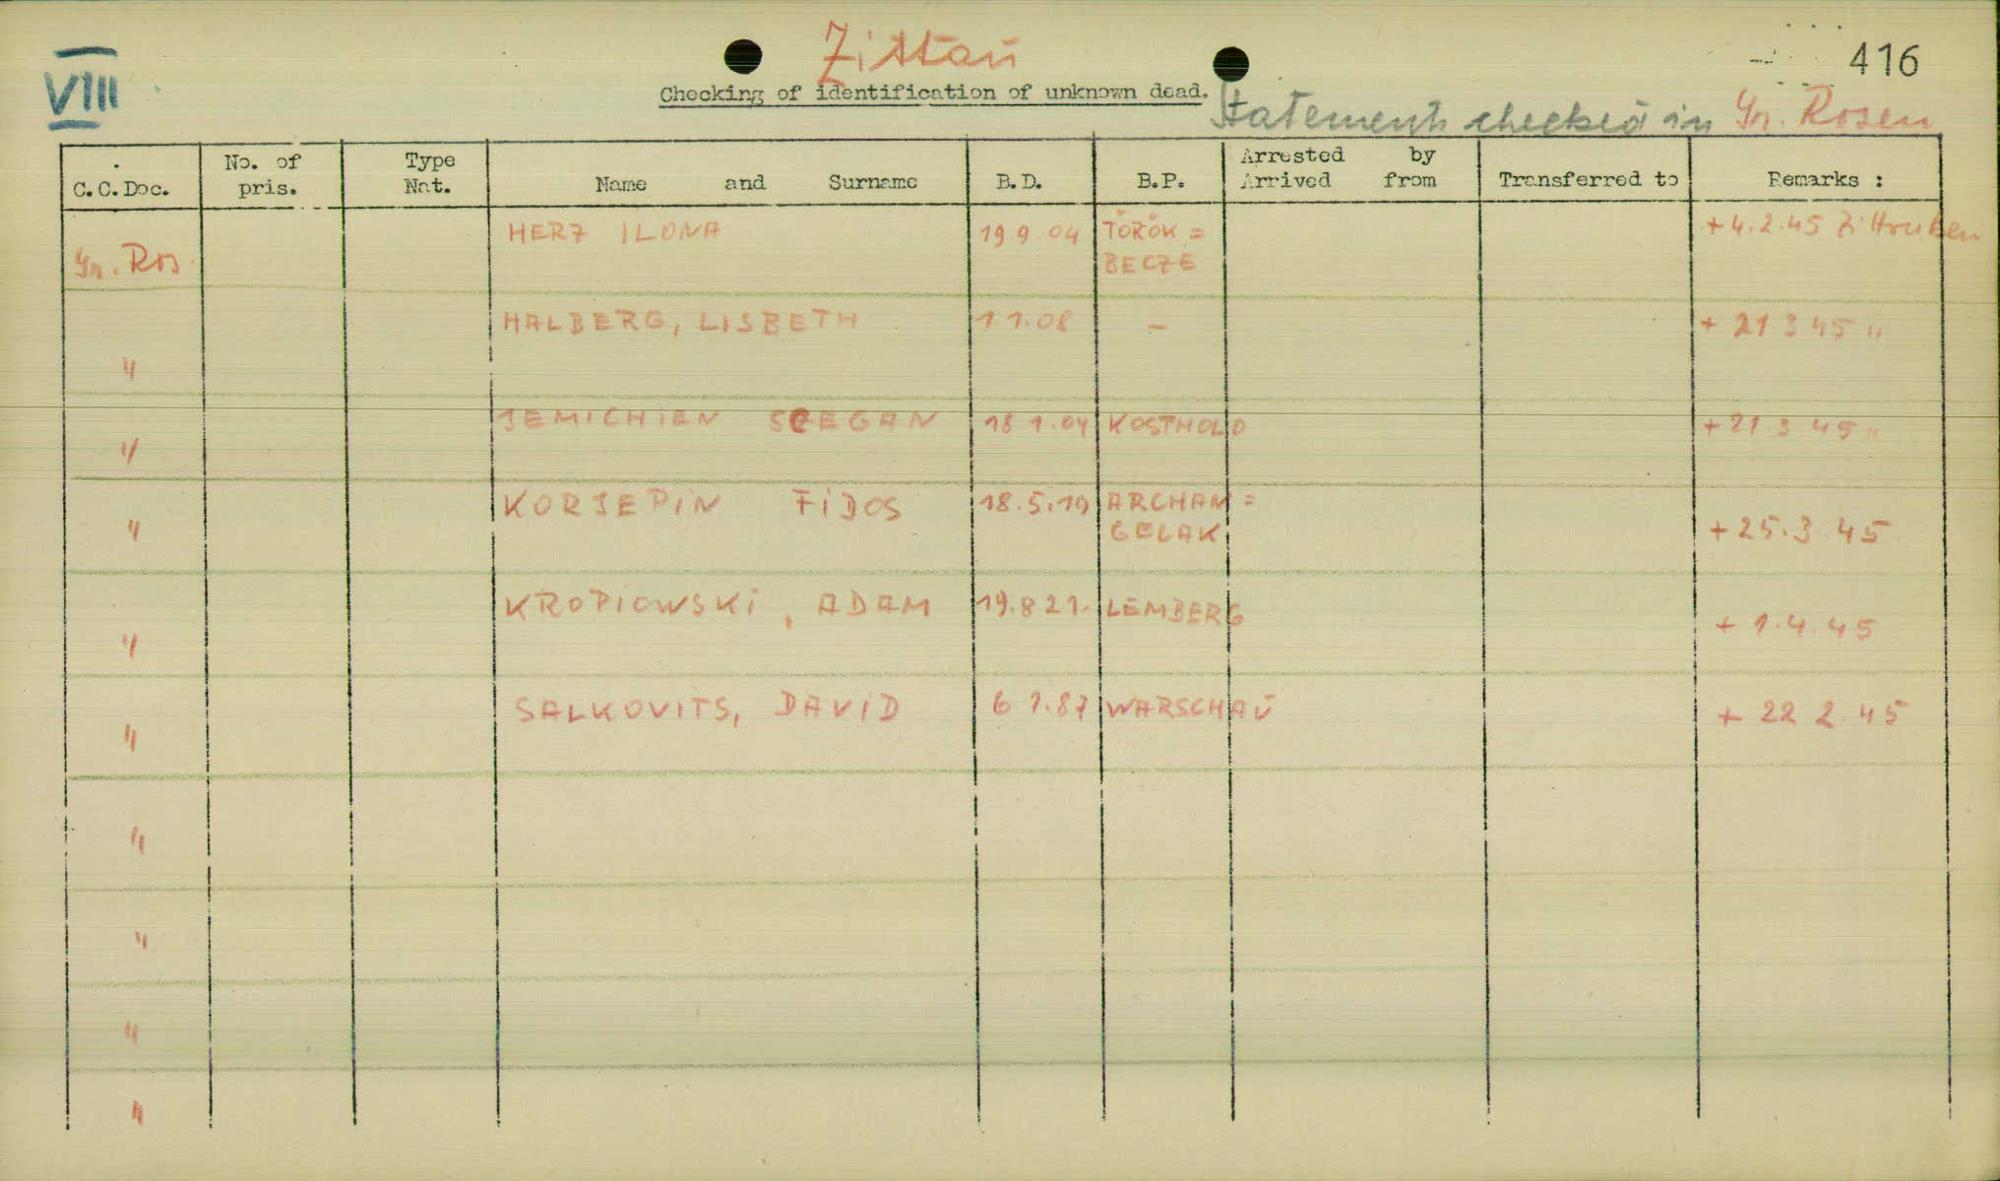 VIII
Zittau
416
Checking of identification of unknown dead.
Statements checked in Gr. Rosen
C.C.Doc. No. of pris. Type Nat. Name and Surname B.D. B.P. Arrested by Arrived from Transferred to Remarks :
Gr. Ros HERZ ILONA 19 9 04 TÖRÖK = +4.2.45
BECZE
" HALBERG, LISBETH 1.1.08 – + 21 3 45 "
" JEMICHIEN 18 1.04 KOSTHOLD +21 3 45 "
" KORJEPIN FIDOS 18.5.19 ARCHAN = +25.3 45
GELAK
" KROPIOWSKI, ADAM 19.8 21. LEMBERG + 1.4.45
" SALKOVITS, DAVID 6 1.87 WARSCHAU + 22 2.45
"
"
"
"